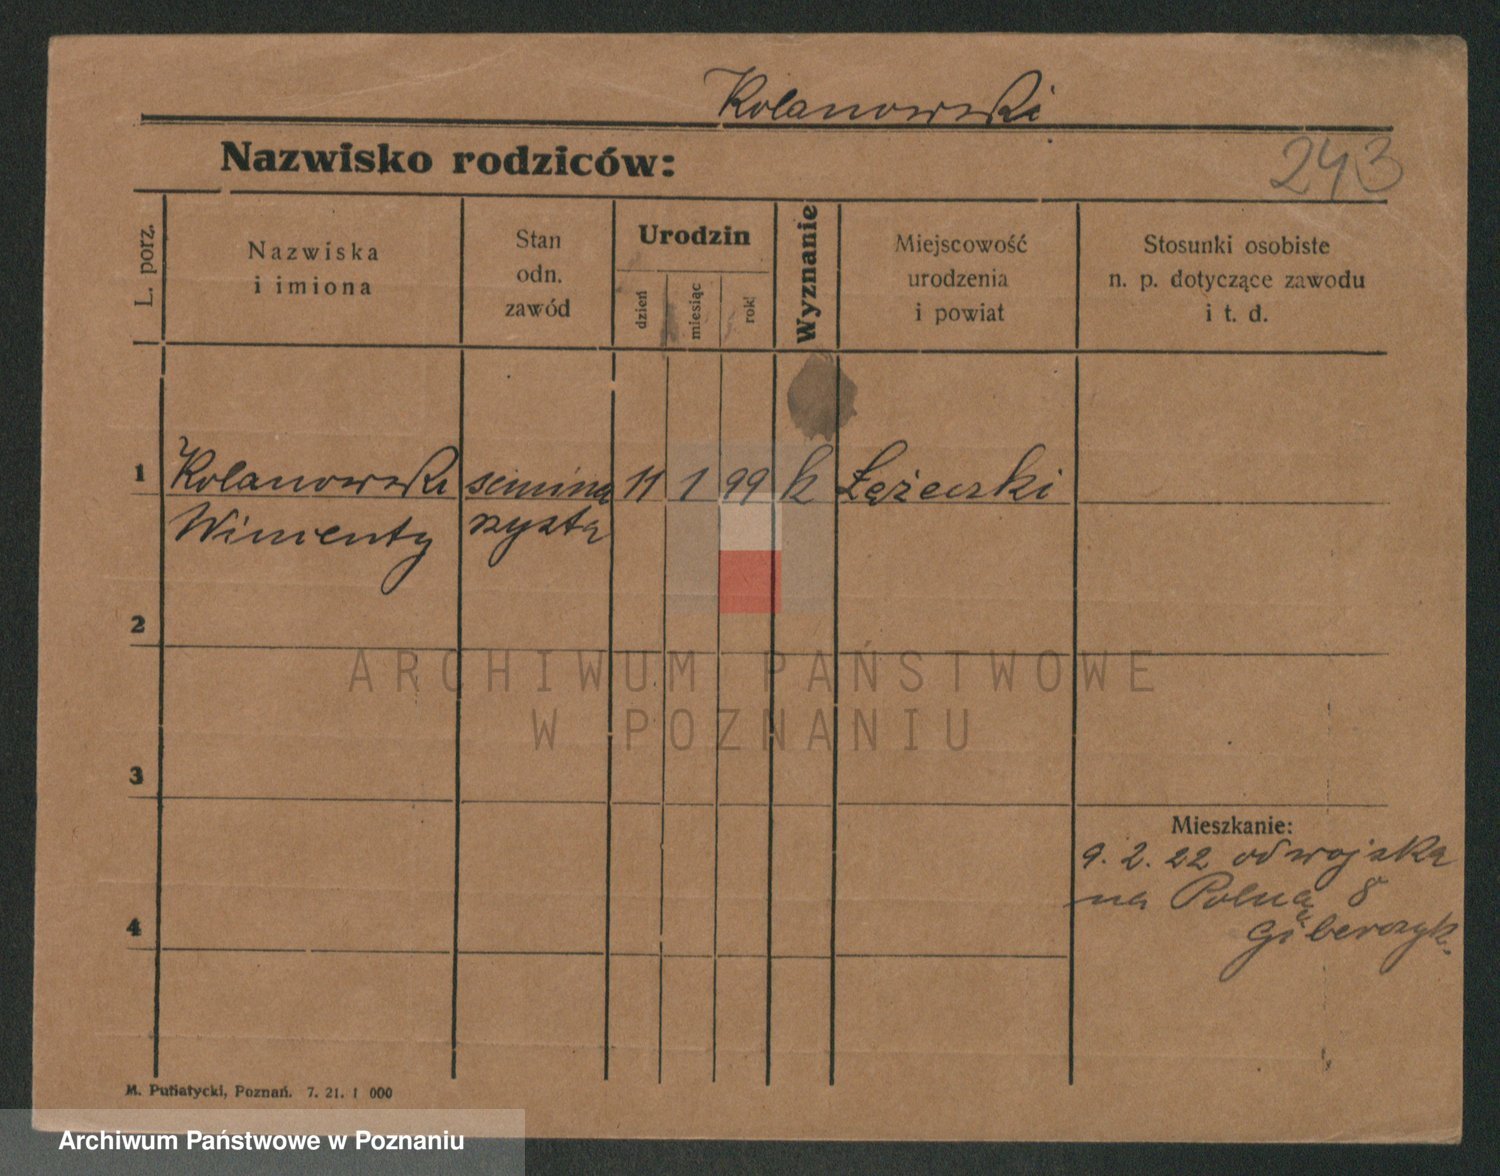 Kolanowski
Nazwisko rodziców:
243
L. porz.
Nazwiska
i imiona
Stan
odn.
zawód
Urodzin
dzień
miesiąc
rok
Wyznanie
Miejscowość
urodzenia
i powiat
Stosunki osobiste
n. p. dotyczące zawodu
i t. d.
1 Kolanowski semina 11 1 99 k
Wincenty rzysta
2
ARCHIWUM PAŃSTWOWE
W POZNANIU
3
Mieszkanie:
9. 2. 22 od wojska
na Polną 8
4
M. Putiatycki, Poznań. 7. 21. 1 000
Archiwum Państwowe w Poznaniu